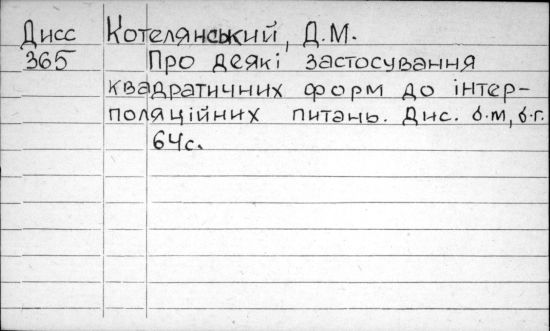 Дисс Котелянський, Д.М.
365 Про деякі застосування
квадратичних форм до інтер-
поляційних питань. Дис. б.м, б.г.
64с.